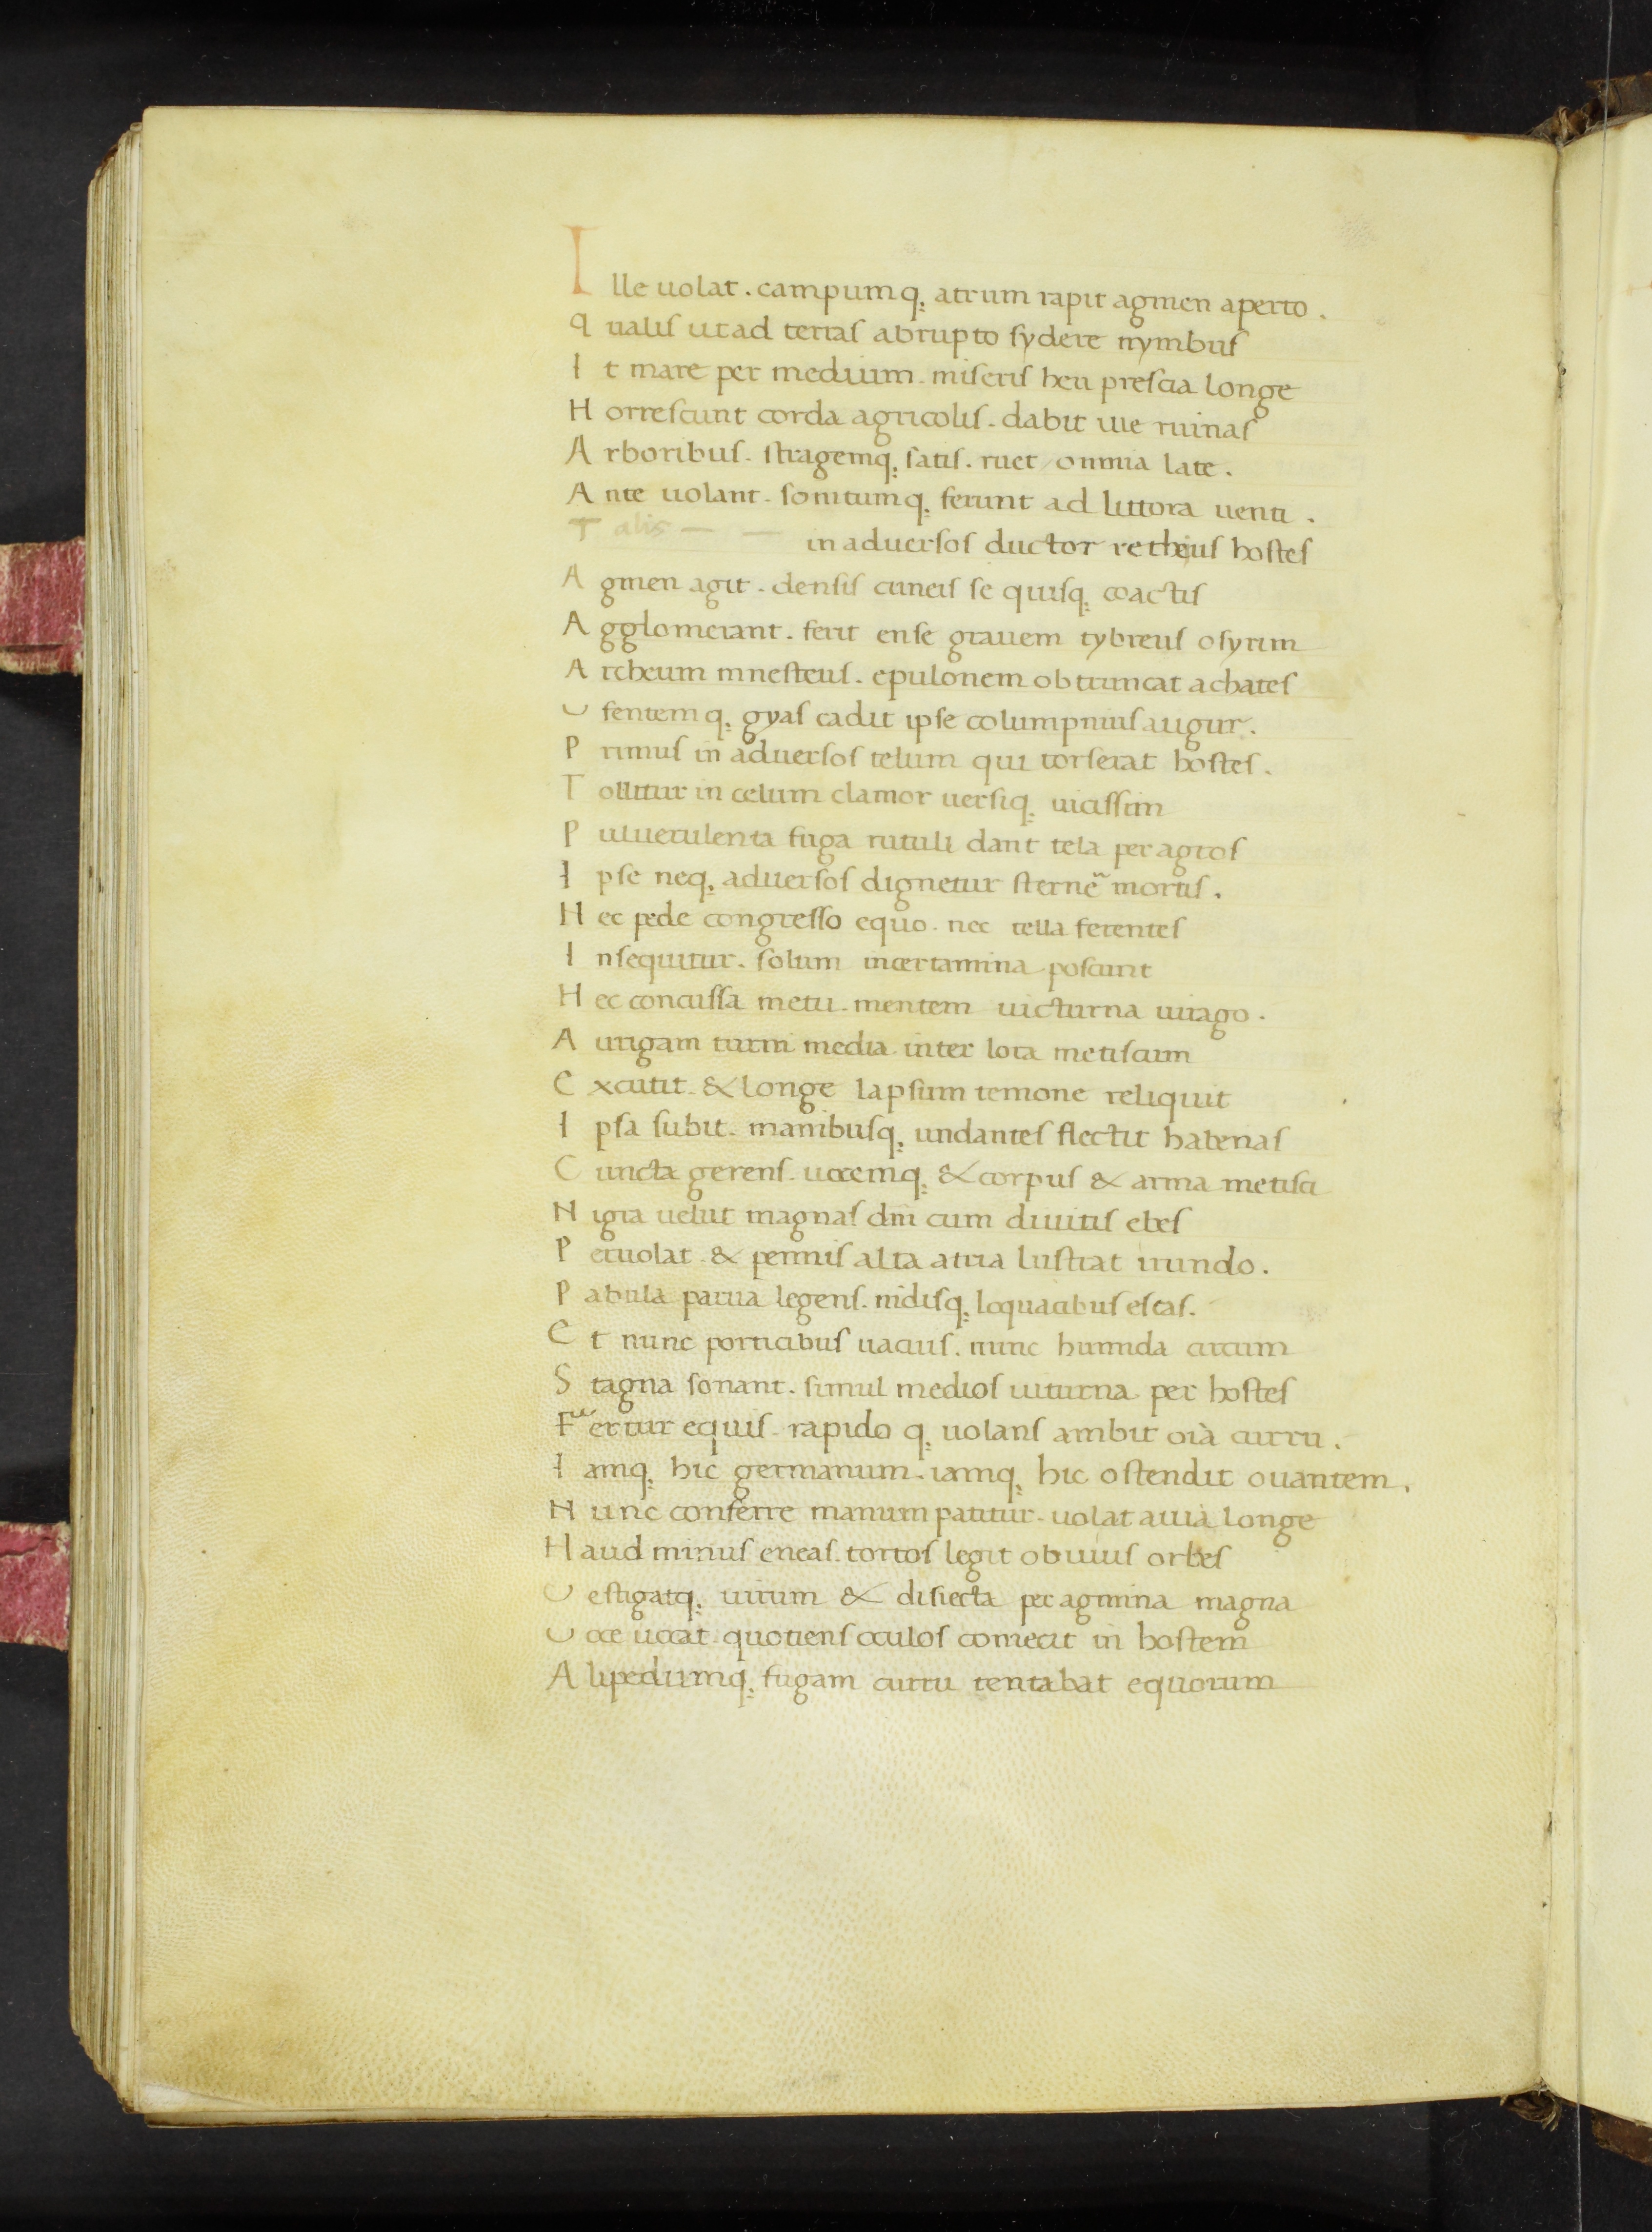 Ille uolat. campumq; atrum rapit agmen aperto.
Qualis ut ad terras abrupto sydere nymbus
It mare per medium. miseris heu prescia longe
Horrescunt corda agricolis. dabit ille ruinas
Arboribus. stragemq; satis. ruet omnia late.
Ante uolant. sonitumq; ferunt ad littora uenti.
Talis — — in aduersos ductor retheus hostes
Agmen agit. densis cuneis se quisq; coactis
Agglomerant. ferit ense grauem tybreus osyrim
Archeum mnesteus. epulonem obtruncat achates
Ufentemq; gyas cadit ipse columpnius augur.
Primus in aduersos telum qui torserat hostes.
Tollitur in celum clamor uersiq; uicissim
Puluerulenta fuga rutuli dant tela per agros
Ipse neq; aduersos dignetur sterne mortis.
Nec pede congresso equo. nec tella ferentes
Insequitur. solum incertamina poscunt
Hec concussa metu. mentem uicturna uirago.
Aurigam turni media inter lora metiscum
Excutit. & longe lapsum temone reliquit
Ipsa subit. manibusq; undantes flectit habenas
Cuncta gerens. uocemq; & corpus & arma metisci
Nigra uelut magnas dni cum diuitis edes
Peruolat. & pennis alta atria lustrat irundo.
Pabula parua legens. nidisq; loquacibus escas.
Et nunc porticibus uacuis. nunc humida circum
Stagna sonant. simul medios uiturna per hostes
Fertur equis. rapido q; uolans ambit oia curru.
Iamq; hic germanum. iamq; hic ostendit ouantem.
Nunc conferre manum patitur. uolat auia longe
Haud minus eneas. tortos legit obuius orbes
Uestigatq; uirum & disiecta per agmina magna
Uoce uocat. quotiens oculos coniecit in hostem
Alipedumq; fugam curru tentabat equorum